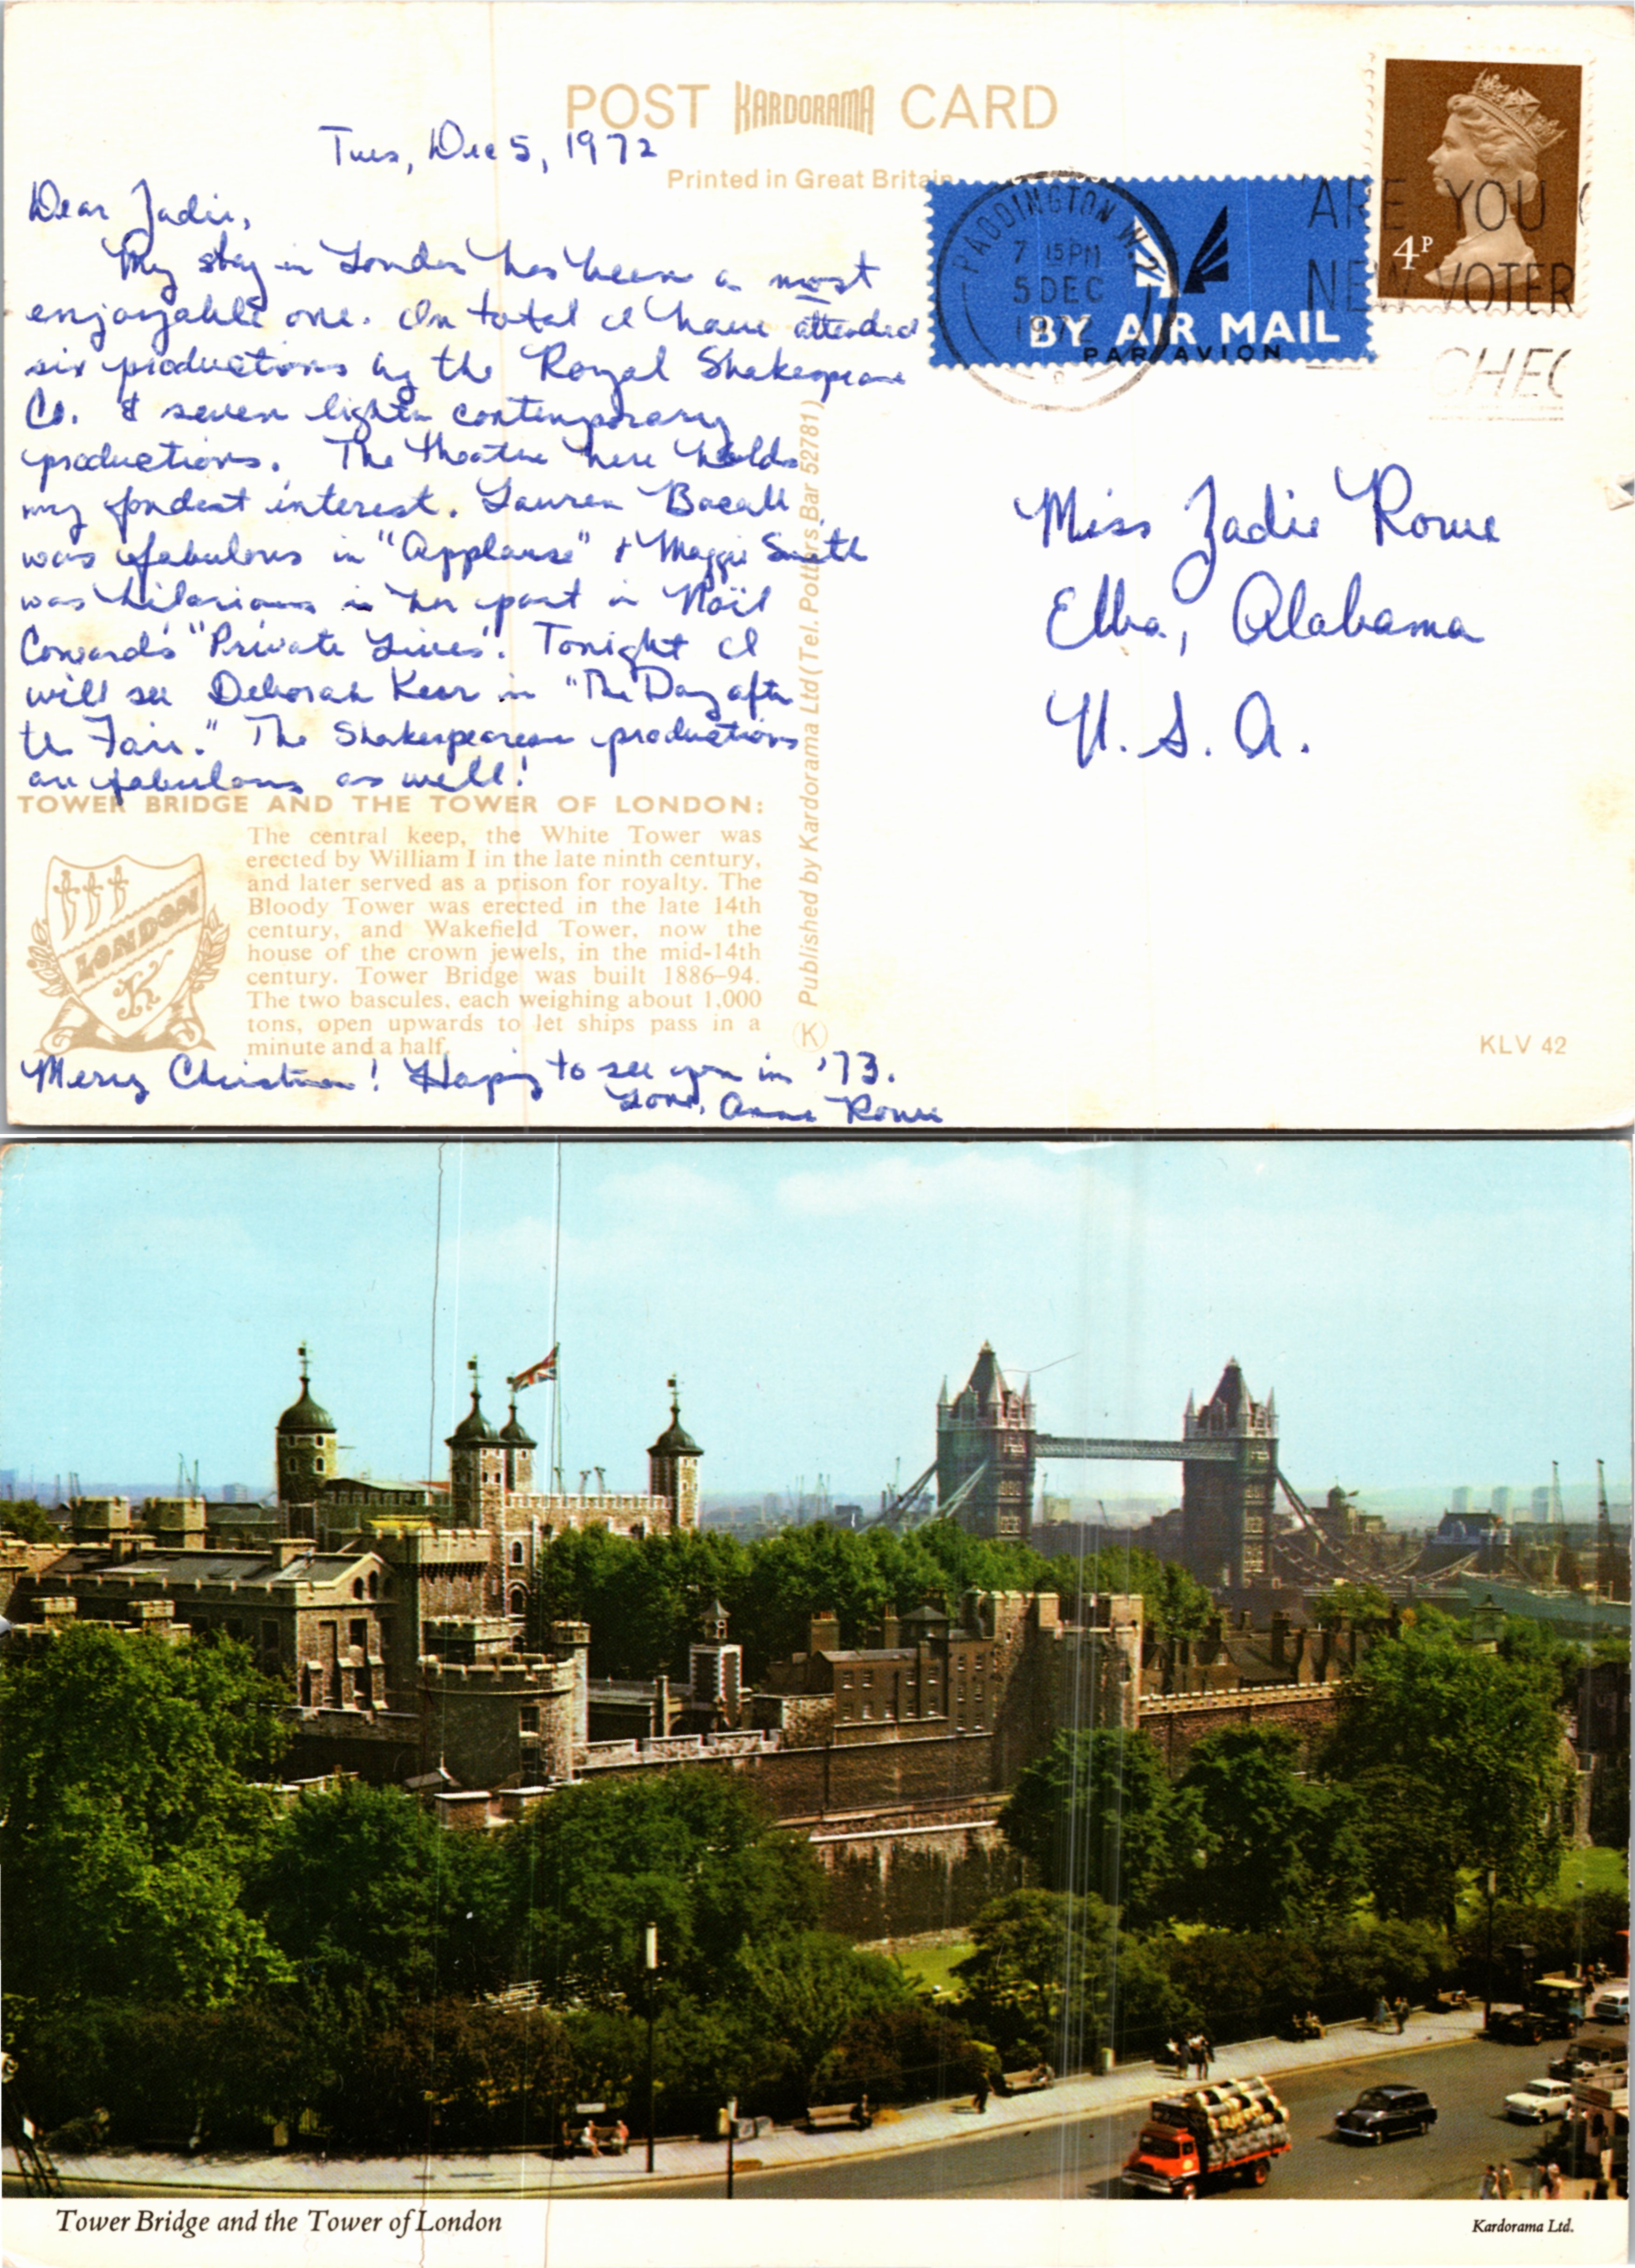 POST KARDORAMA CARD
Printed in Great Britain
Tues, Dec 5, 1972
Dear Zadie,
My stay in London has been a most
enjoyable one. In total I have attended
six productions by the Royal Shakespeare
Co. & seven lighter contemporary
productions. The theatre here holds
my fondest interest. Lauren Bacall
was fabulous in "Applause" & Maggie Smith
was hilarious in her part in Noël
Coward's "Private Lives". Tonight I
will see Deborah Kerr in "The Day after
the Fair." The Shakespearean productions
are fabulous as well!
TOWER BRIDGE AND THE TOWER OF LONDON:
The central keep, the White Tower was
erected by William I in the late ninth century,
and later served as a prison for royalty. The
Bloody Tower was erected in the late 14th
century, and Wakefield Tower, now the
house of the crown jewels, in the mid-14th
century. Tower Bridge was built 1886–94.
The two bascules, each weighing about 1,000
tons, open upwards to let ships pass in a
minute and a half.
LONDON
K
Merry Christmas! Hoping to see you in '73.
Love, Anne Rowe
Published by Kardorama Ltd (Tel. Potters Bar 52781)
K
PADDINGTON W.2
7 15 PM
5 DEC
1972
BY AIR MAIL
PAR AVION
4P
ARE YOU
NEW VOTER
CHEC
Miss Zadie Rowe
Elba, Alabama
U. S. A.
KLV 42
Tower Bridge and the Tower of London
Kardorama Ltd.